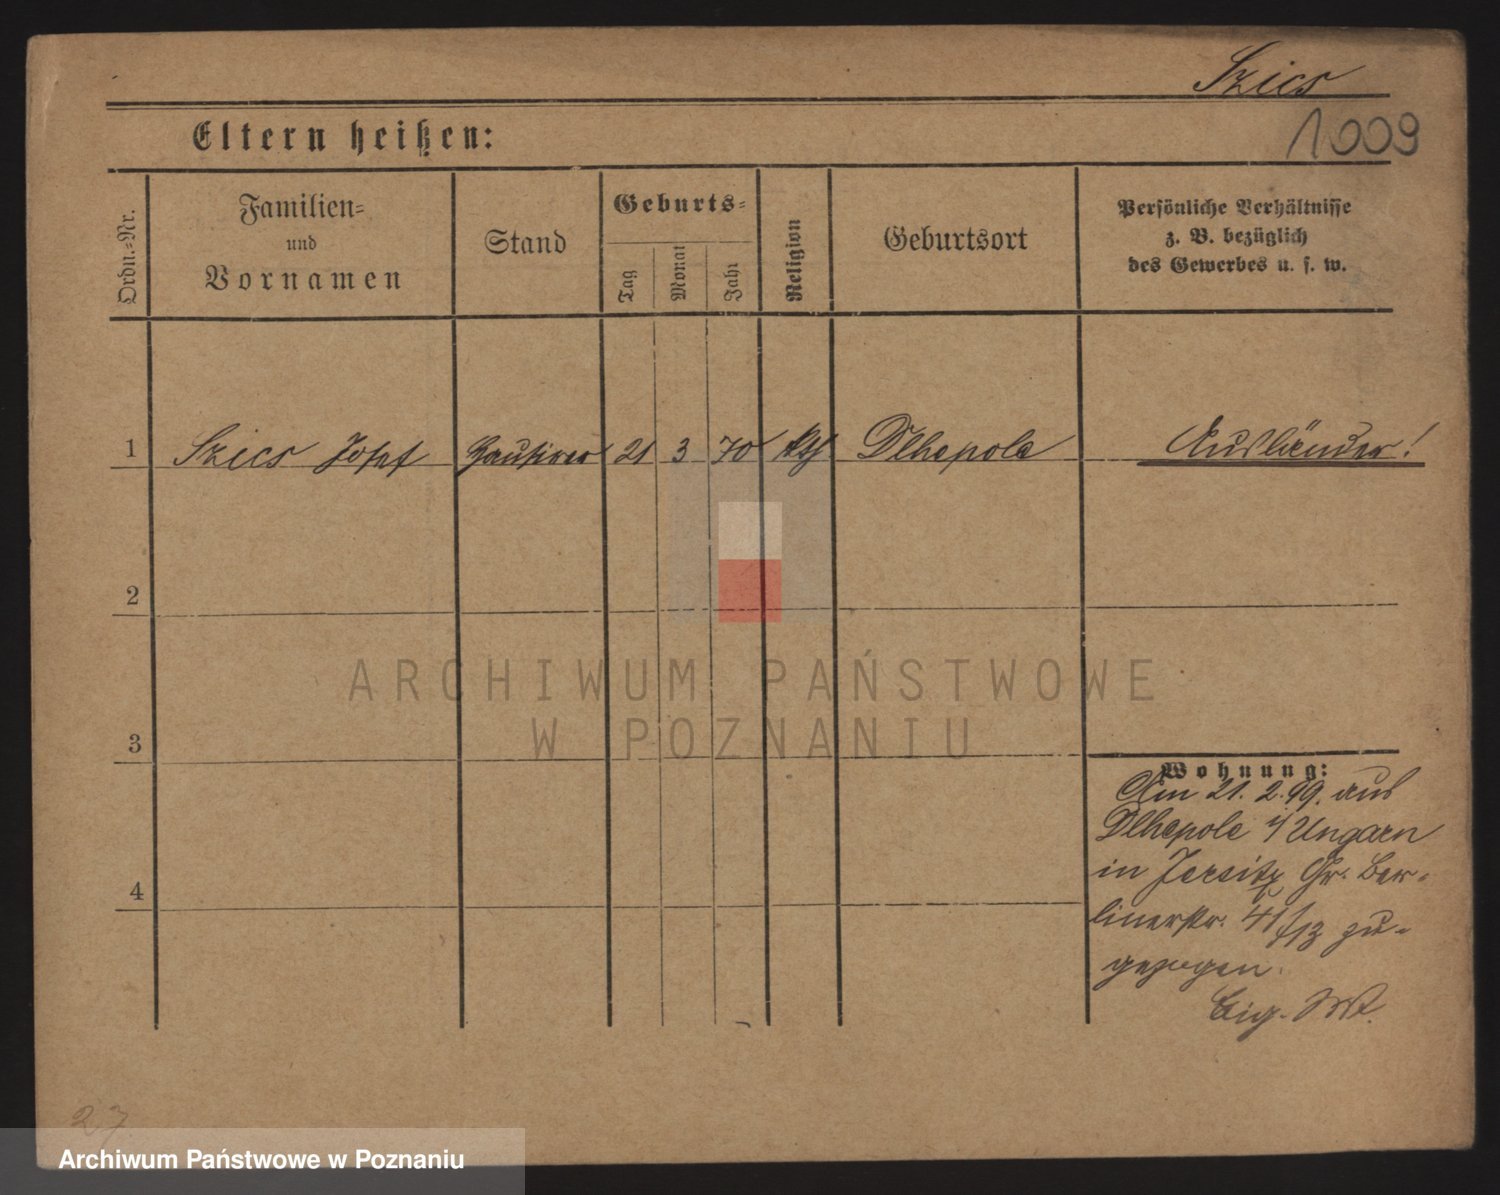 Szics
1009
Eltern heißen:
Ordn.-Nr.
Familien-
und
Vornamen
Stand
Geburts-
Tag
Monat
Jahr
Religion
Geburtsort
Persönliche Verhältnisse
z. B. bezüglich
des Gewerbes u. s. w.
1 Szics Josef Hausirer 21 3 70 kth Dlhepole Ausländer!
2
ARCHIWUM PAŃSTWOWE
W POZNANIU
3
Wohnung:
Am 21. 2. 99. aus
Dlhepole i/ Ungarn
in Jersitz Gr. Ber-
linerstr. 41/43 zu-
gezogen.
4
27
Archiwum Państwowe w Poznaniu